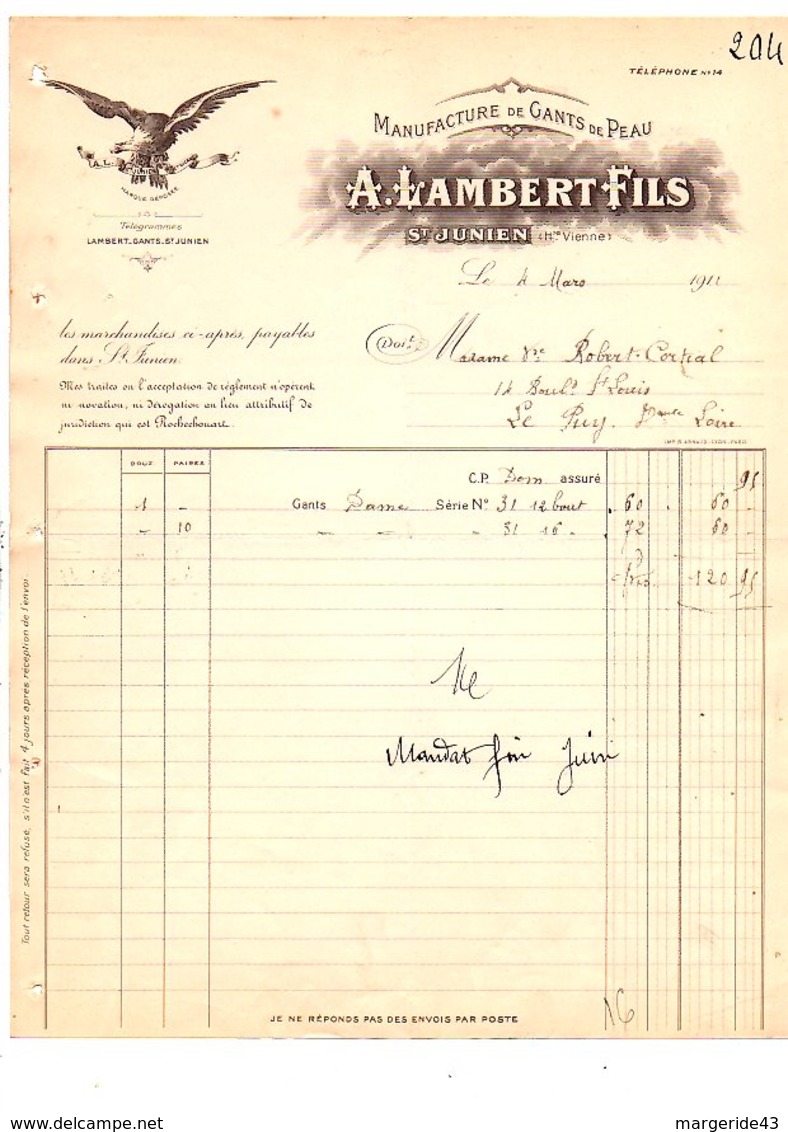 204
TÉLÉPHONE Nº 14
MANUFACTURE DE GANTS DE PEAU
A. LAMBERT FILS
ST JUNIEN (Hte Vienne)
A.L. ST JUNIEN
MARQUE DÉPOSÉE
Télégrammes
LAMBERT_GANTS_ST JUNIEN
Le 4 Mars 1911
les marchandises ci-après, payables
dans St Junien.
Mes traites ou l'acceptation de règlement n'opèrent
ni novation, ni dérogation au lieu attributif de
juridiction qui est Rochechouart.
Doit
Madame Vve Robert-Cortial
14 Bould St Louis
Le Puy Haute Loire
DOUZ PAIRES
C.P. Dom assuré 95
1 - Gants Dame Série Nº 31 12 bout 60 60 -
- 10 " " " 31 16 " 72 60 -
120 95
Me
Mandat fin Juin
Tout retour sera refusé, s'il n'est fait 4 jours après réception de l'envoi.
16
JE NE RÉPONDS PAS DES ENVOIS PAR POSTE
margeride43